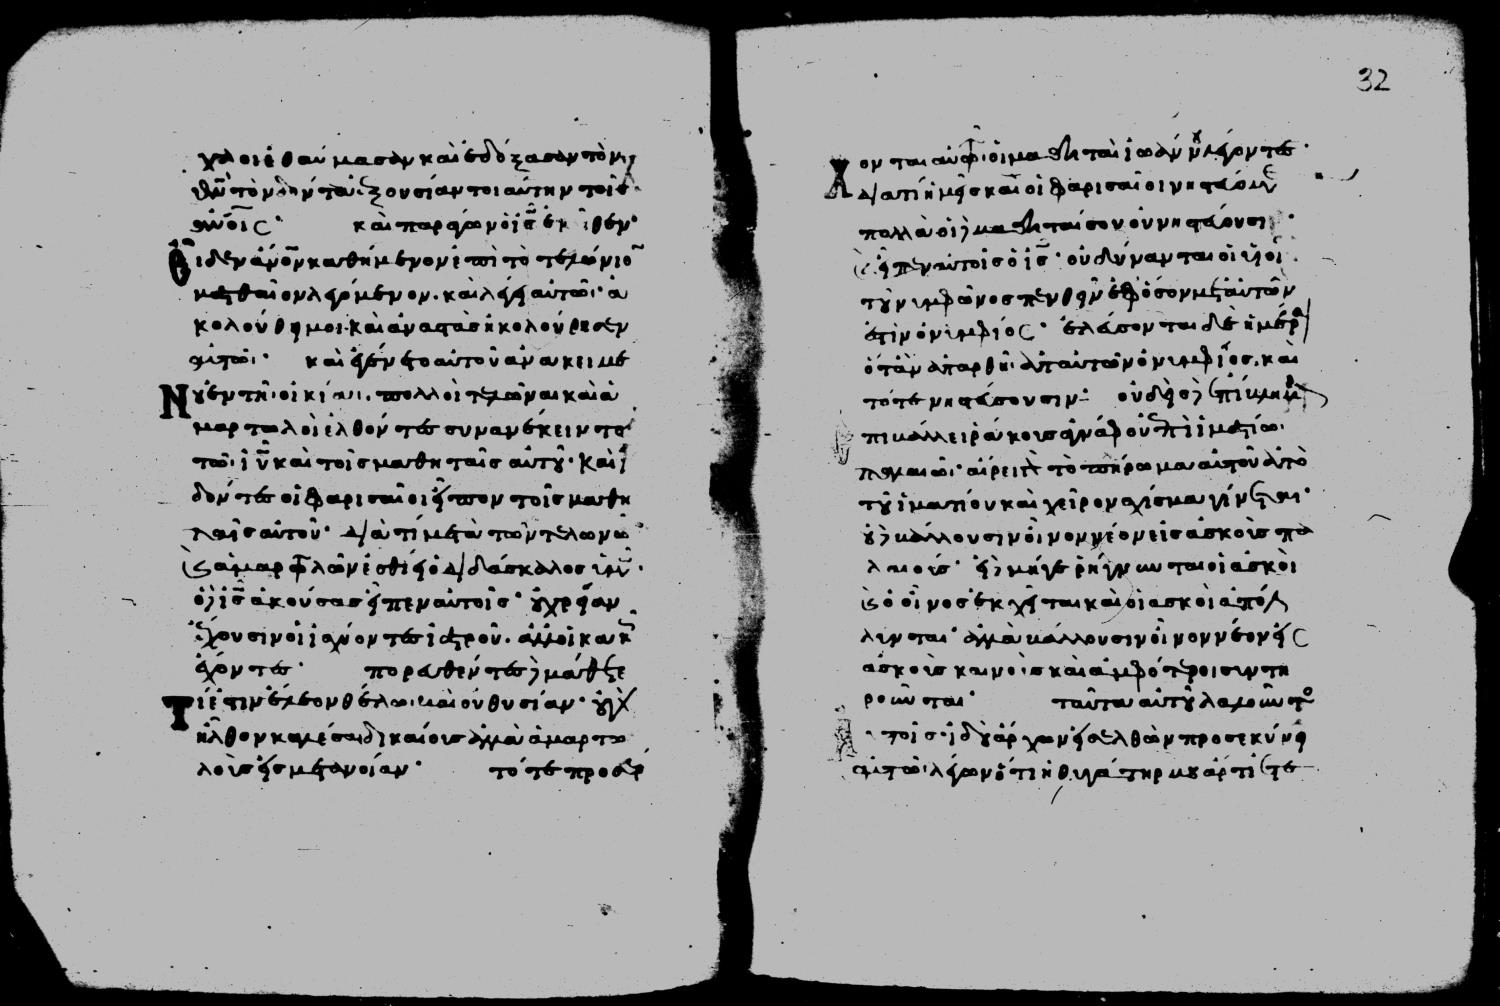 χλοι ἐθαύμασαν καὶ ἐδόξασαν τὸν
θν̄ τὸν δόντα ἐξουσίαν τοιαύτην τοῖς
ἀνοις· καὶ παράγων ὁ ις̄ ἐκεῖθεν·
εἶδεν ἀνον καθήμενον ἐπὶ τὸ τελώνιον
ματθαῖον λεγόμενον· καὶ λέγει αὐτῶ· ἀ
κολούθη μοι· καὶ ἀναστὰς ἠκολούθησεν
αὐτῶ· καὶ ἐγένετο αὐτοῦ ἀνακειμέ
νου ἐν τῆ οἰκία· πολλοὶ τελῶναι καὶ ἁ
μαρτωλοὶ ἐλθόντες συνανέκειντο
τῶ ιῡ καὶ τοῖς μαθηταῖς αὐτοῦ· καὶ ἰ
δόντες οἱ φαρισαῖοι εἶπον τοῖς μαθη
ταῖς αὐτοῦ· διὰ τί μετὰ τῶν τελωνῶν
καὶ ἁμαρτωλῶν ἐσθίει ὁ διδάσκαλος ὑμῶν
ὁ δὲ ις̄ ἀκούσας εἶπεν αὐτοῖς· οὐ χρείαν
ἔχουσιν οἱ ἰσχύοντες ἰατροῦ· ἀλλ' οἱ κακῶς
ἔχοντες· πορευθέντες δὲ μάθετε
τί ἐστιν ἔλεον θέλω· καὶ οὐ θυσίαν· οὐ γὰρ
ἦλθον καλέσαι δικαίους ἀλλὰ ἁμαρτω
λοὺς εἰς μετάνοιαν· τότε προσέρ
32
χονται αὐτῶ οἱ μαθηταὶ ἰωάννου λέγοντες·
διατί ἡμεῖς καὶ οἱ φαρισαῖοι νηστεύομεν
πολλὰ οἱ δὲ μαθηταί σου οὐ νηστεύουσι·
καὶ εἶπεν αὐτοῖς ὁ ις̄· οὐ δύνανται οἱ υἱοὶ
τοῦ νυμφῶνος πενθεῖν ἐφ' ὅσον μετ' αὐτῶν
ἐστιν ὁ νυμφίος· ἐλεύσονται δὲ ἡμέραι
ὅταν ἀπαρθῆ ἀπ' αὐτῶν ὁ νυμφίος· καὶ
τότε νηστεύσουσιν· οὐδεὶς δὲ ἐπίβλημα
ἐπιβάλλει ῥάκους ἀγνάφου ἐπὶ ἱματίω
παλαιῶ· αἴρει γὰρ τὸ πλήρωμα αὐτοῦ ἀπὸ
τοῦ ἱματίου καὶ χεῖρον σχίσμα γίνεται·
οὐδὲ βάλλουσιν οἶνον νέον εἰς ἀσκοὺς πα
λαιούς· εἰ δὲ μήγε ῥήγνυνται οἱ ἀσκοὶ
καὶ ὁ οἶνος ἐκχεῖται καὶ οἱ ἀσκοὶ ἀπόλ
λυνται· ἀλλὰ βάλλουσιν οἶνον νέον εἰς
ἀσκοὺς καινοὺς καὶ ἀμφότεροι συντη
ροῦνται· ταῦτα αὐτοῦ λαλοῦντος
αὐτοῖς· ἰδοὺ ἄρχων εἰσελθὼν προσεκύνει
αὐτῶ· λέγων ὅτι ἡ θυγάτηρ μου ἄρτι ἐτε